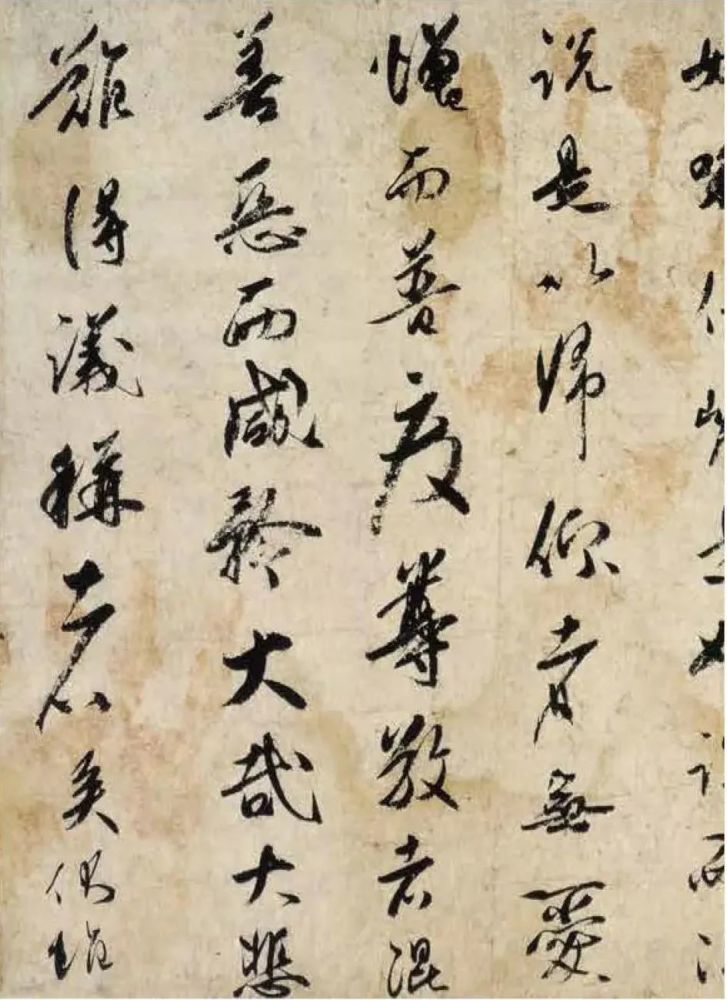 說是以歸依者無愛
憎而普度尊敬者混
善惡而咸矜大哉大悲
難得議稱者矣仍